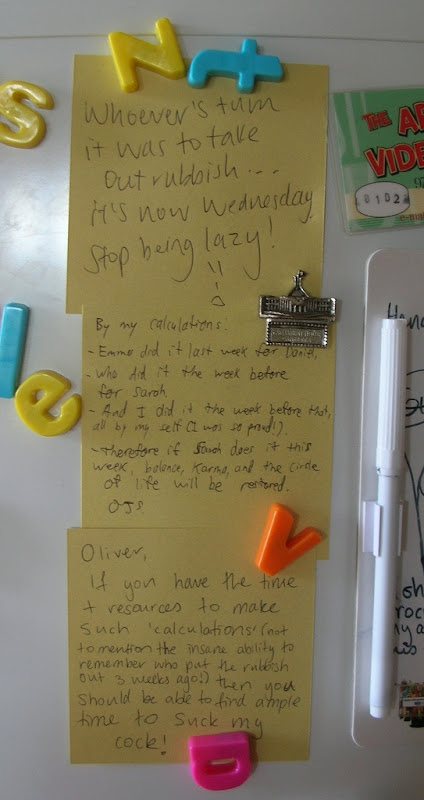 N t
s
Whoever's turn
it was to take
out rubbish...
it's now Wednesday
Stop being lazy!
THE AR
VIDE
0102
e-ma
By my calculations:
- Emma did it last week for Daniel,
- Who did it the week before
for Sarah
- And I did it the week before that,
all by my self (I was so proud!).
- Therefore if Sarah does it this
week, balance, Karma, and the circle
of life will be restored.
OJS
l
e
V
Oliver,
If you have the time
+ resources to make
such 'calculations' (not
to mention the insane ability to
remember who put the rubbish
out 3 weeks ago!) then you
should be able to find ample
time to suck my
cock!
D